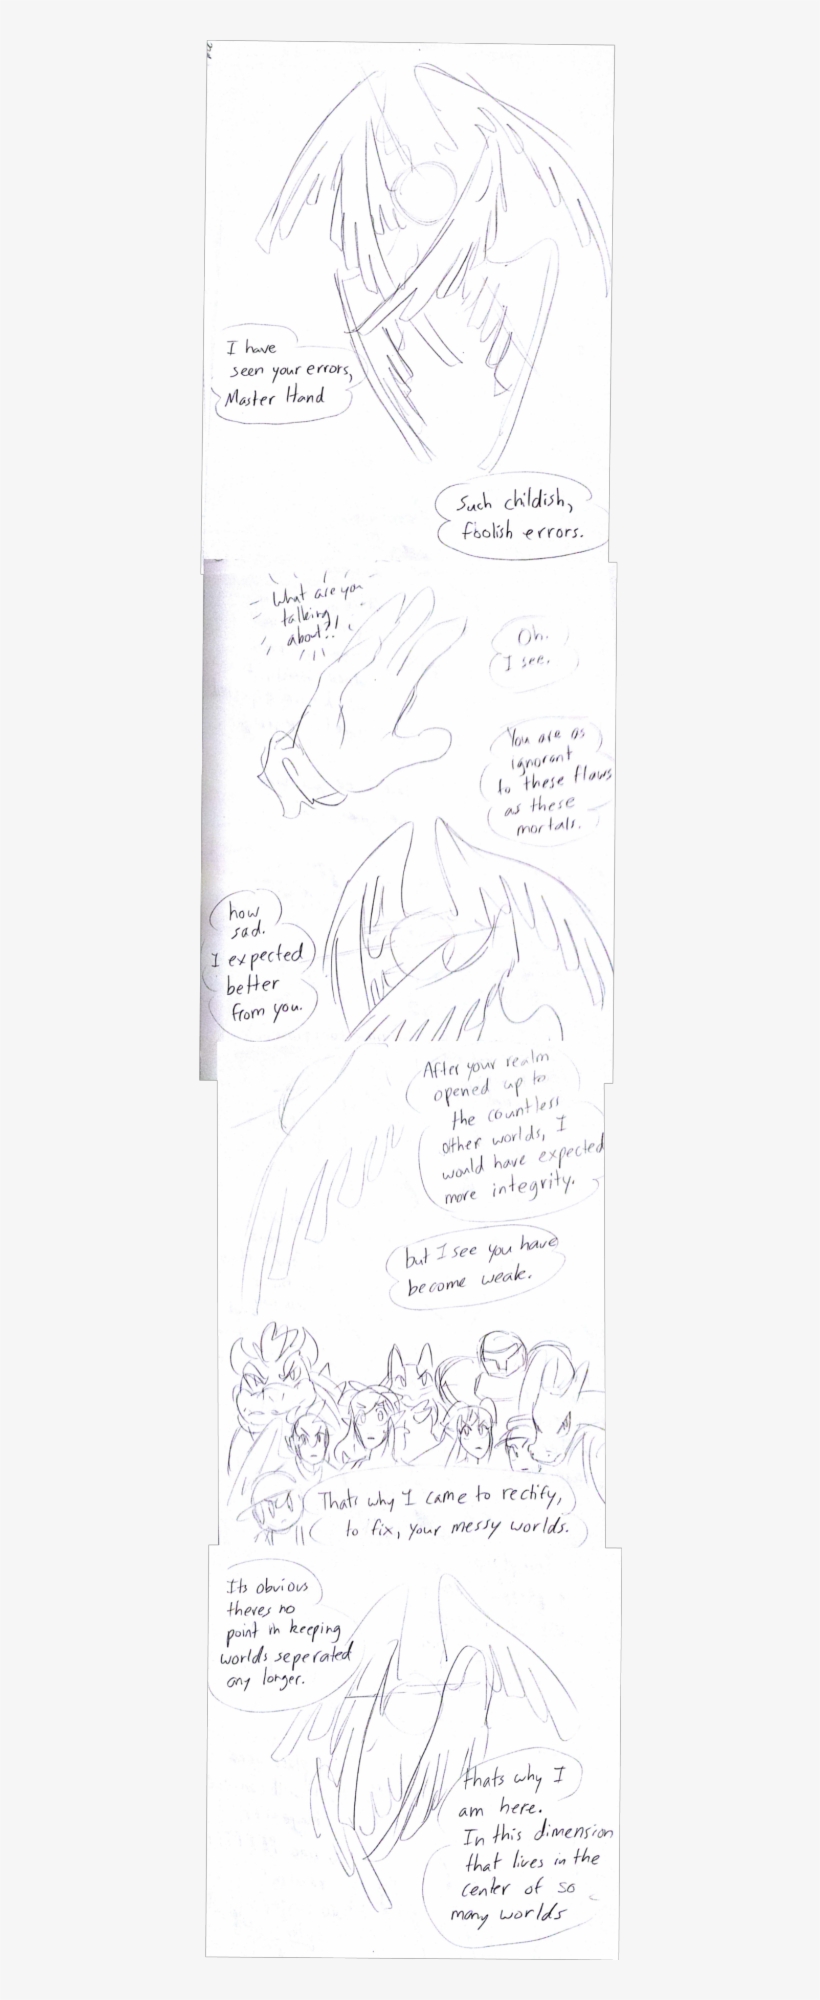 I have
seen your errors,
Master Hand
Such childish,
foolish errors.
What are you
talking
about?!
Oh.
I see.
You are as
ignorant
to these flaws
as these
mortals.
how
sad.
I expected
better
from you.
After your realm
opened up to
the countless
other worlds, I
would have expected
more integrity.
but I see you have
become weak.
Thats why I came to rectify,
to fix, your messy worlds.
Its obvious
theres no
point in keeping
worlds seperated
any longer.
thats why I
am here.
In this dimension
that lives in the
center of so
many worlds